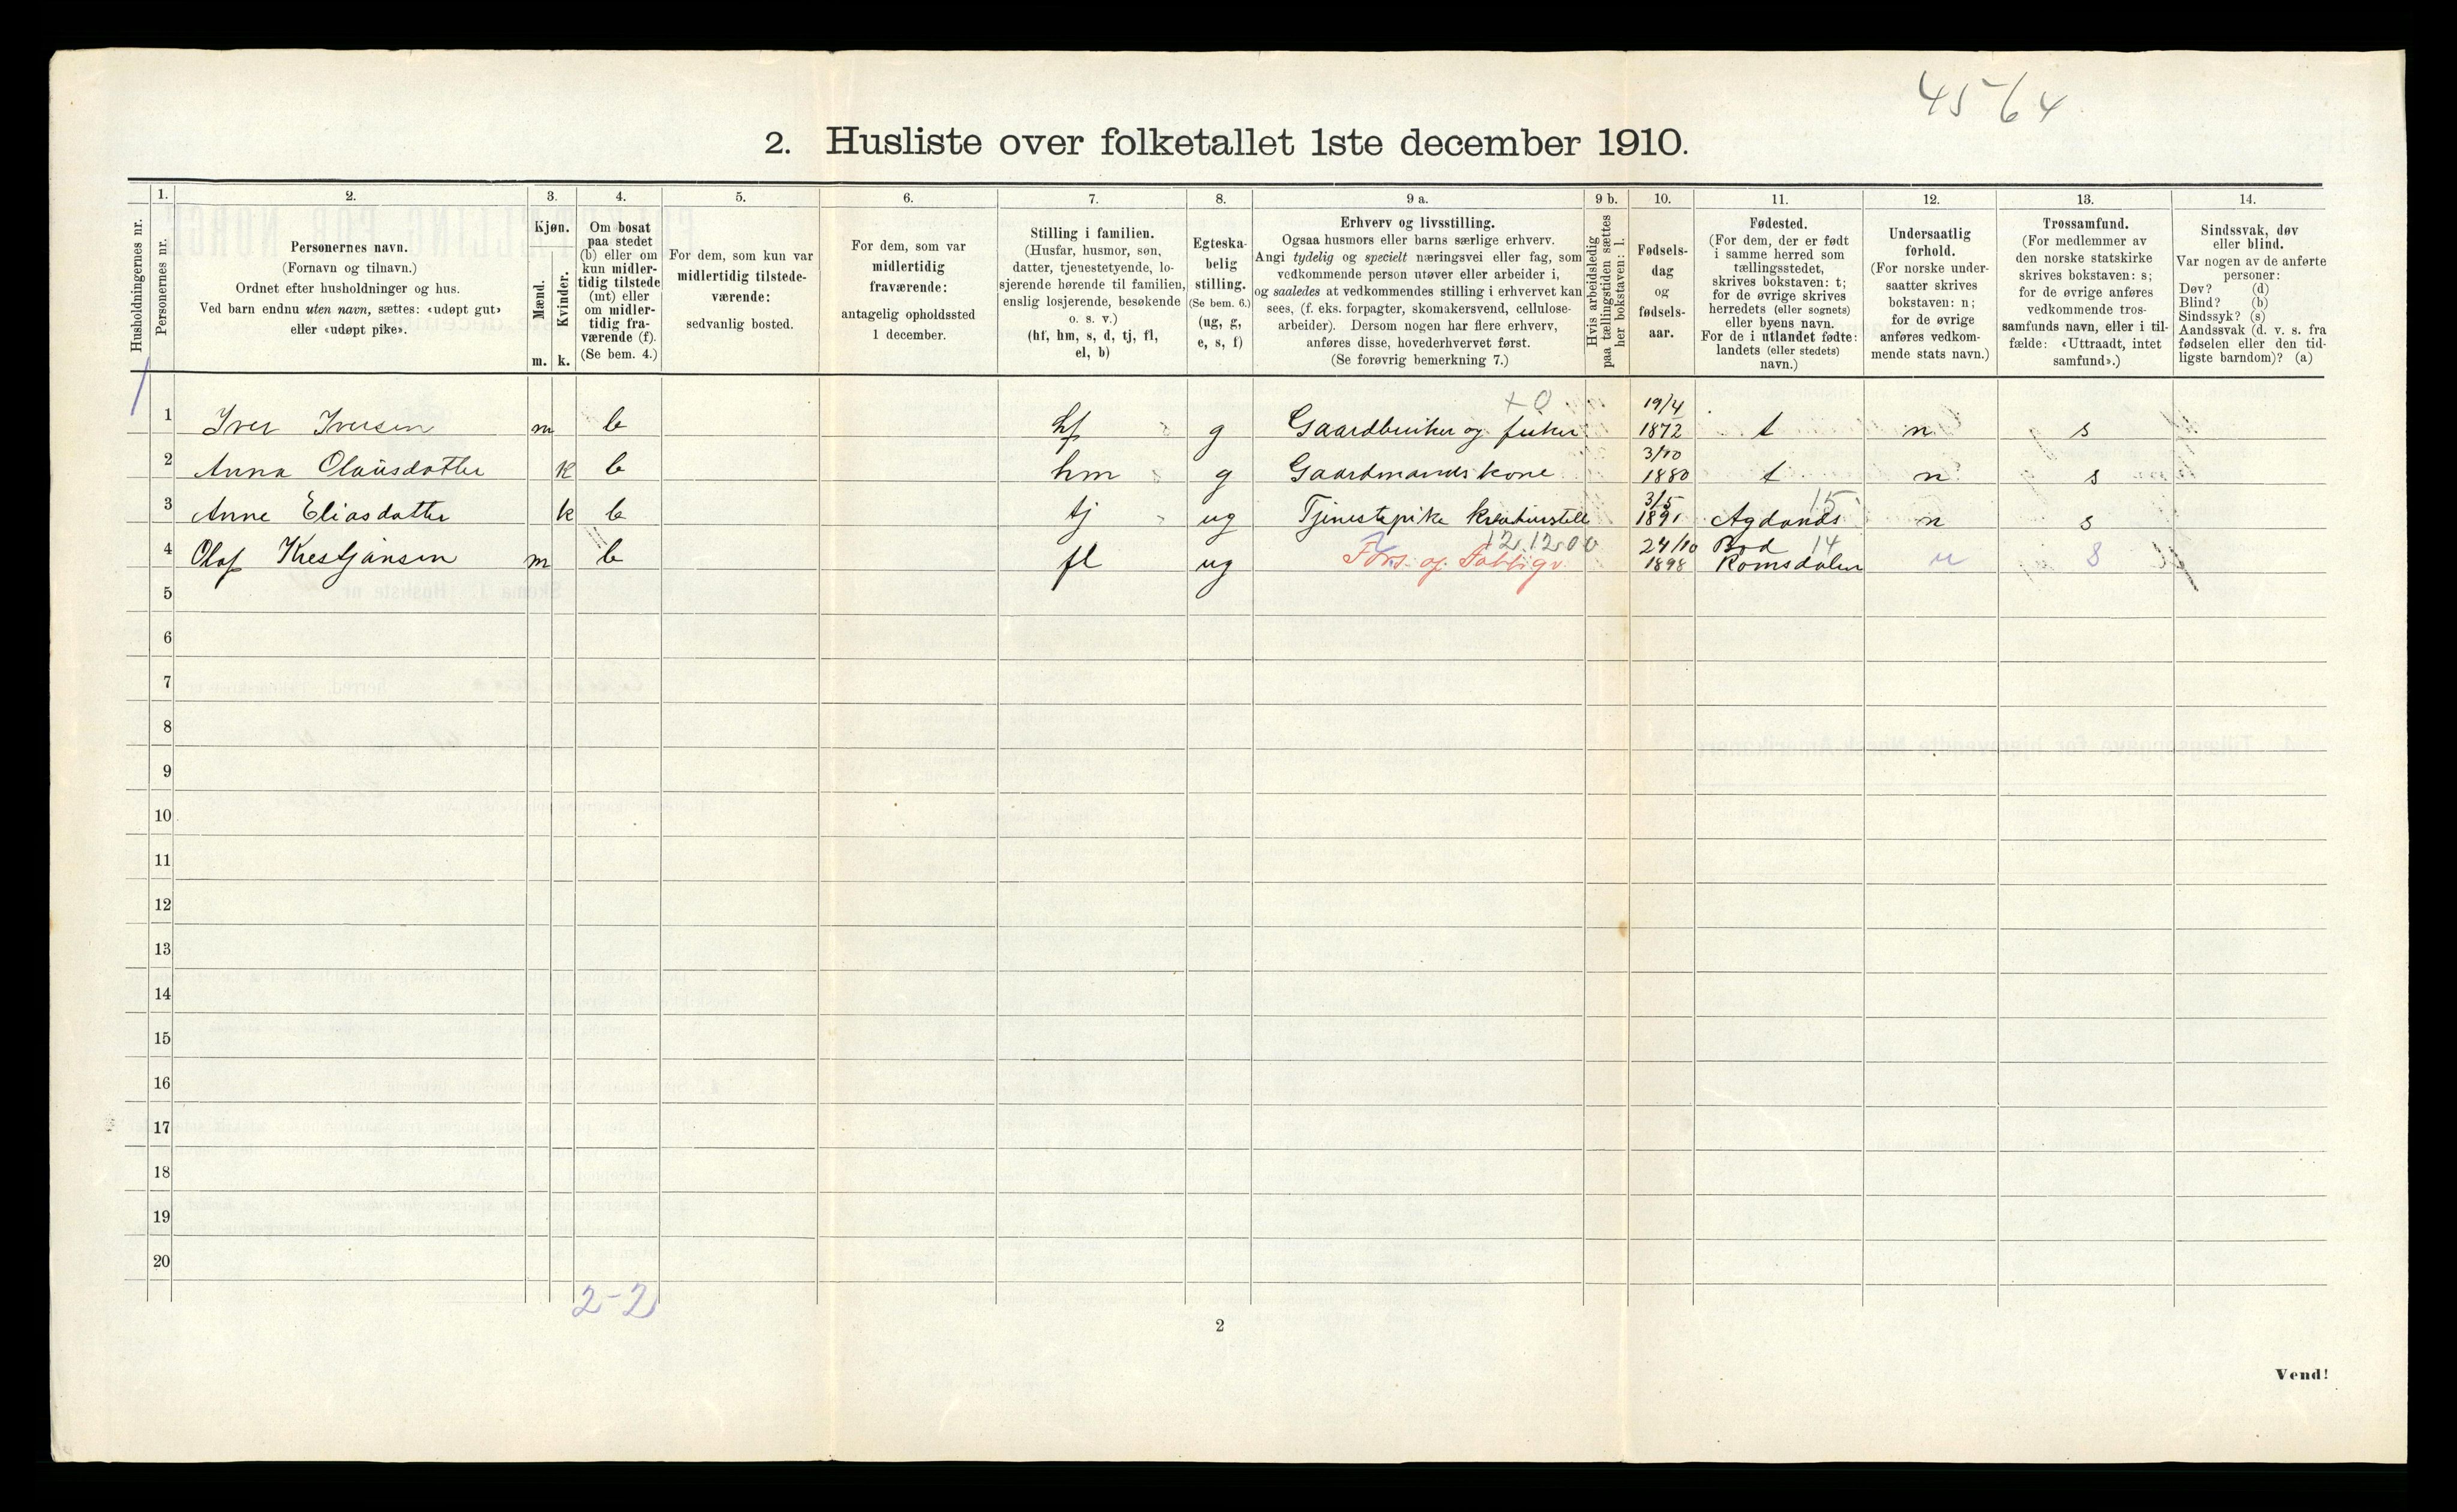 45-64
2. Husliste over folketallet 1ste december 1910.
1. 2. 3. 4. 5. 6. 7. 8. 9 a. 9 b. 10. 11. 12. 13. 14.
Husholdningernes nr.
Personernes nr.
Personernes navn.
(Fornavn og tilnavn.)
Ordnet efter husholdninger og hus.
Ved barn endnu uten navn, sættes: «udøpt gut»
eller «udøpt pike».
Kjøn.
Mænd.
Kvinder.
m. k.
Om bosat
paa stedet
(b) eller om
kun midler-
tidig tilstede
(mt) eller
om midler-
tidig fra-
værende (f).
(Se bem. 4.)
For dem, som kun var
midlertidig tilstede-
værende:
sedvanlig bosted.
For dem, som var
midlertidig
fraværende:
antagelig opholdssted
1 december.
Stilling i familien.
(Husfar, husmor, søn,
datter, tjenestetyende, lo-
sjerende hørende til familien,
enslig losjerende, besøkende
o. s. v.)
(hf, hm, s, d, tj, fl,
el, b)
Egteska-
belig
stilling.
(Se bem. 6.)
(ug, g,
e, s, f)
Erhverv og livsstilling.
Ogsaa husmors eller barns særlige erhverv.
Angi tydelig og specielt næringsvei eller fag, som
vedkommende person utøver eller arbeider i,
og saaledes at vedkommendes stilling i erhvervet kan
sees, (f. eks. forpagter, skomakersvend, cellulose-
arbeider). Dersom nogen har flere erhverv,
anføres disse, hovederhvervet først.
(Se forøvrig bemerkning 7.)
Hvis arbeidsledig
paa tællingstiden sættes
her bokstaven: l.
Fødsels-
dag
og
fødsels-
aar.
Fødested.
(For dem, der er født
i samme herred som
tællingsstedet,
skrives bokstaven: t;
for de øvrige skrives
herredets (eller sognets)
eller byens navn.
For de i utlandet fødte:
landets (eller stedets)
navn.)
Undersaatlig
forhold.
(For norske under-
saatter skrives
bokstaven: n;
for de øvrige
anføres vedkom-
mende stats navn.)
Trossamfund.
(For medlemmer av
den norske statskirke
skrives bokstaven: s;
for de øvrige anføres
vedkommende tros-
samfunds navn, eller i til-
fælde: «Uttraadt, intet
samfund».)
Sindssvak, døv
eller blind.
Var nogen av de anførte
personer:
Døv? (d)
Blind? (b)
Sindssyk? (s)
Aandssvak (d. v. s. fra
fødselen eller den tid-
ligste barndom)? (a)
1 1 Iver Iversen m b hf g Gaardbruker og fisker +0 19/4 1872 t n s
2 Anna Olausdatter k b hm g Gaardmandskone 3/10 1880 t n s
3 Anne Eliasdatter k b tj ug Tjenestepike kreaturstell 3/5 1891 Agdanæs 15 n s
4 Olaf Kristjansen m b fl ug 12.12.00 Fors. og 24/10 1898 Bod 14 Romsdalen n s
5
6
7
8
9
10
11
12
13
14
15
16
17
18
19
20
2-2
2
Vend!